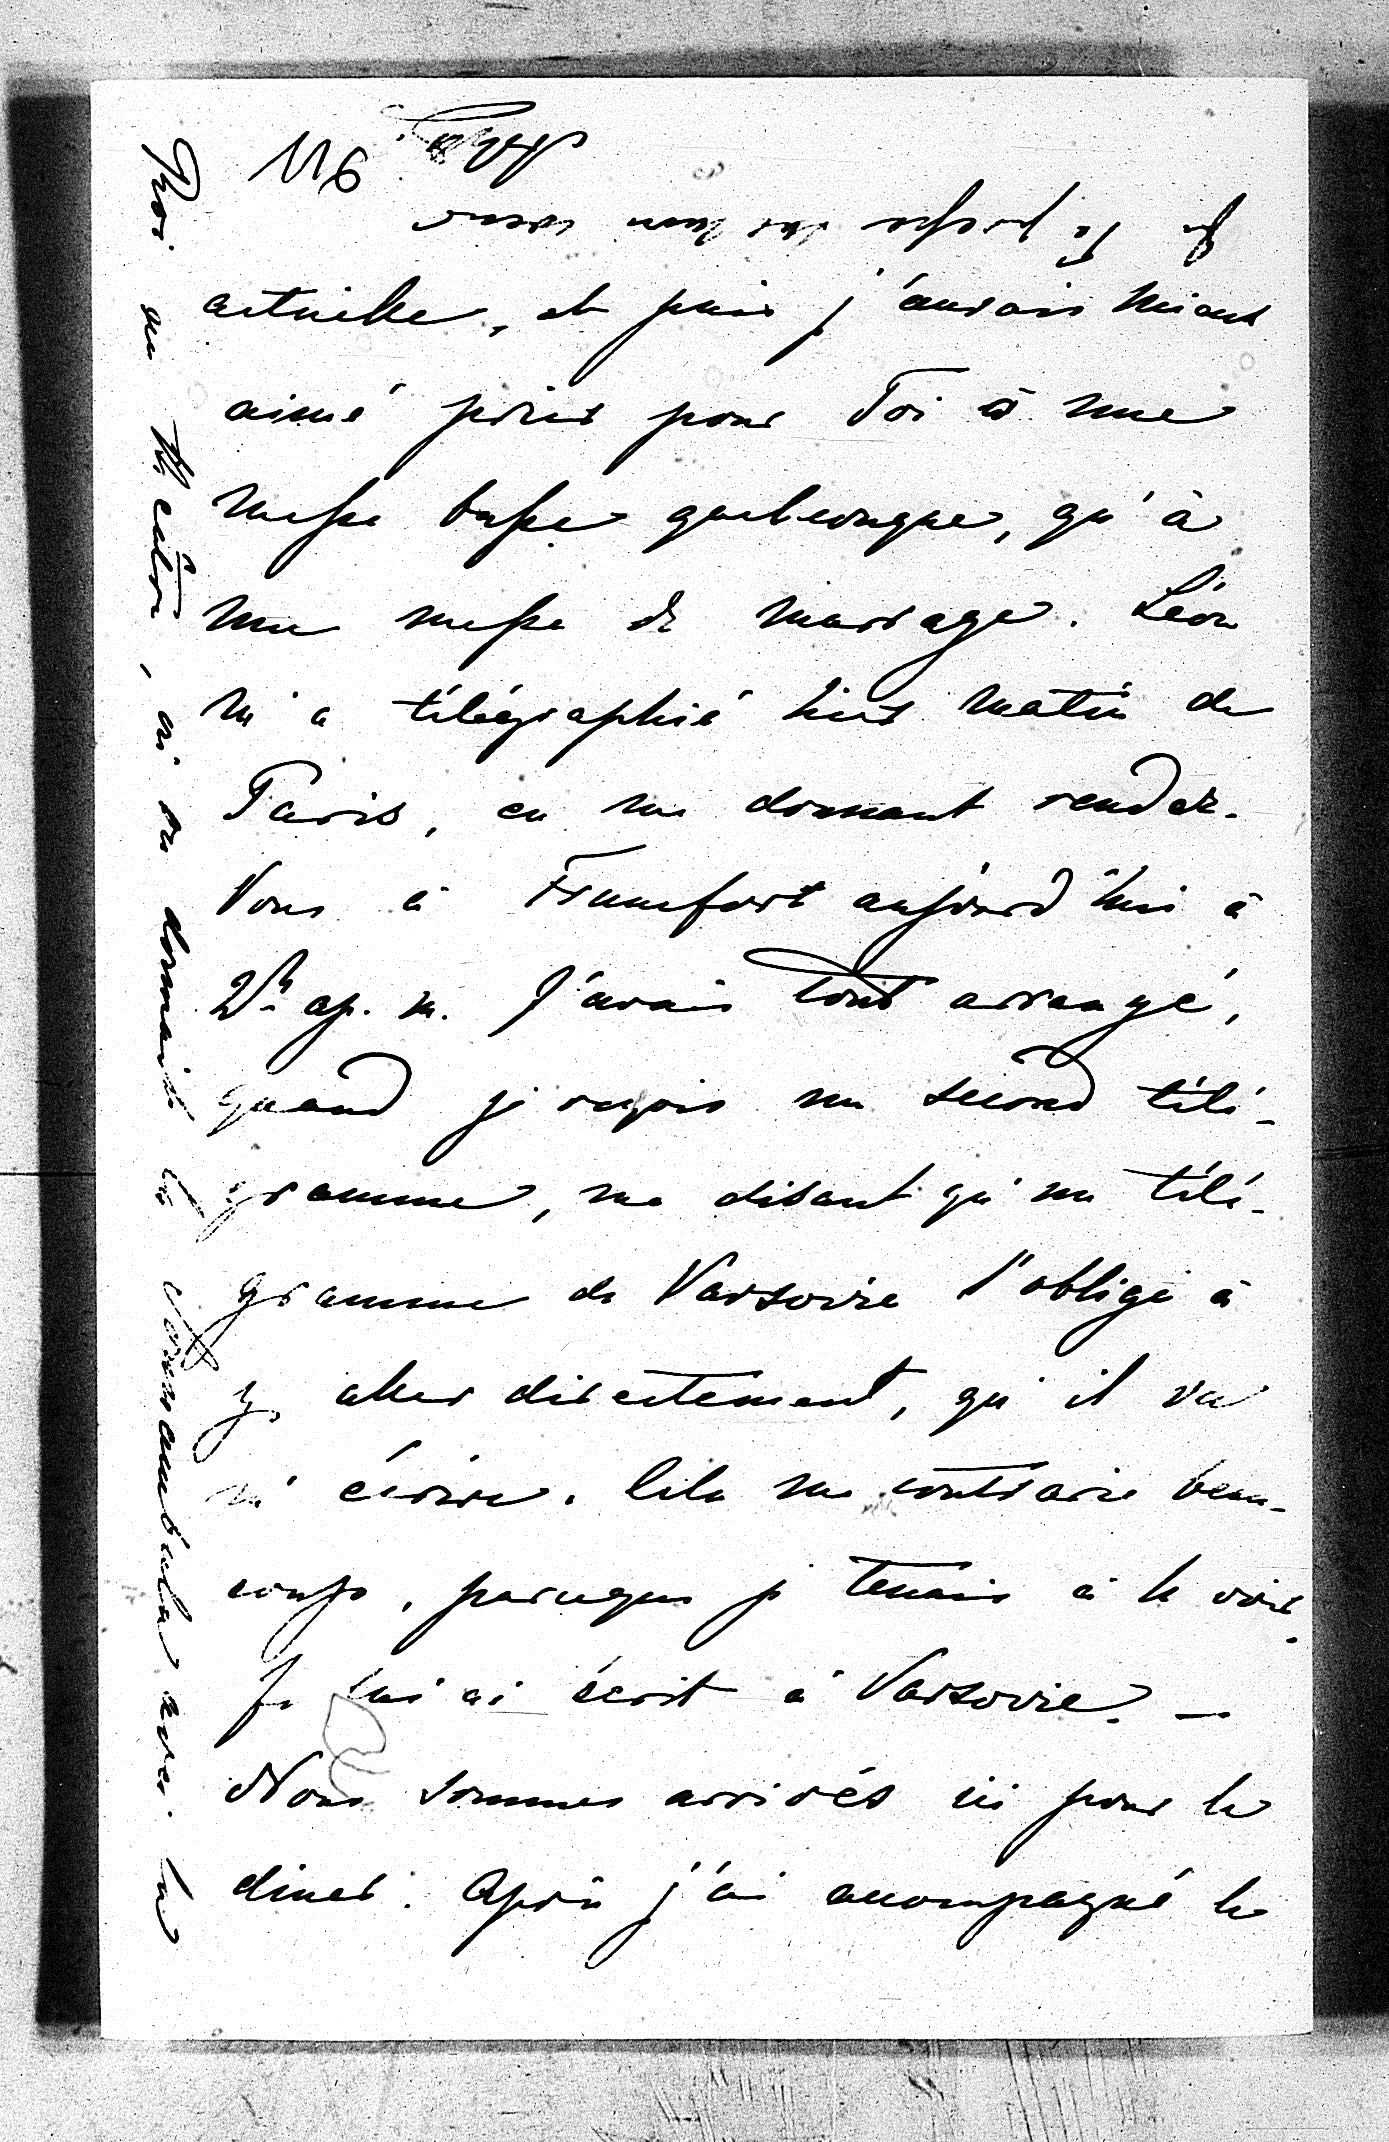 116
actuelle, et puis j'aurais mieux
aimé prier pour Toi à une
messe basse quelconque, qu'à
une messe de mariage. Léon
m'a télégraphié hier matin de
Paris, en me donnant rendez-
vous à Francfort aujourd'hui à
2h ap. m. J'avais tout arrangé,
quand je reçois un second télé-
gramme, me disant qu'un télé-
gramme de Varsovie l'oblige à
y aller directement, qu'il va
m'écrire. Cela me contrarie beau-
coup, parceque je tenais à le voir.
Je lui ai écrit à Varsovie. —
Nous sommes arrivés ici pour le
diner. Après j'ai accompagné le
Roi au théâtre, où on donnait la Sonnambula avec la
Je Te presse sur mon cœur